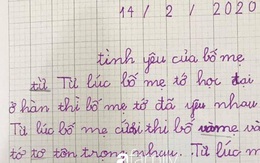 14 / 2 / 2020
tình yêu của bố mẹ
từ Từ lúc bố mẹ tớ học đại
ở hàn thì bố mẹ tớ đã yêu nhau
Từ lúc bố mẹ cưới thì bố và mẹ và
tớ tôn trọng nhau. Từ lúc m